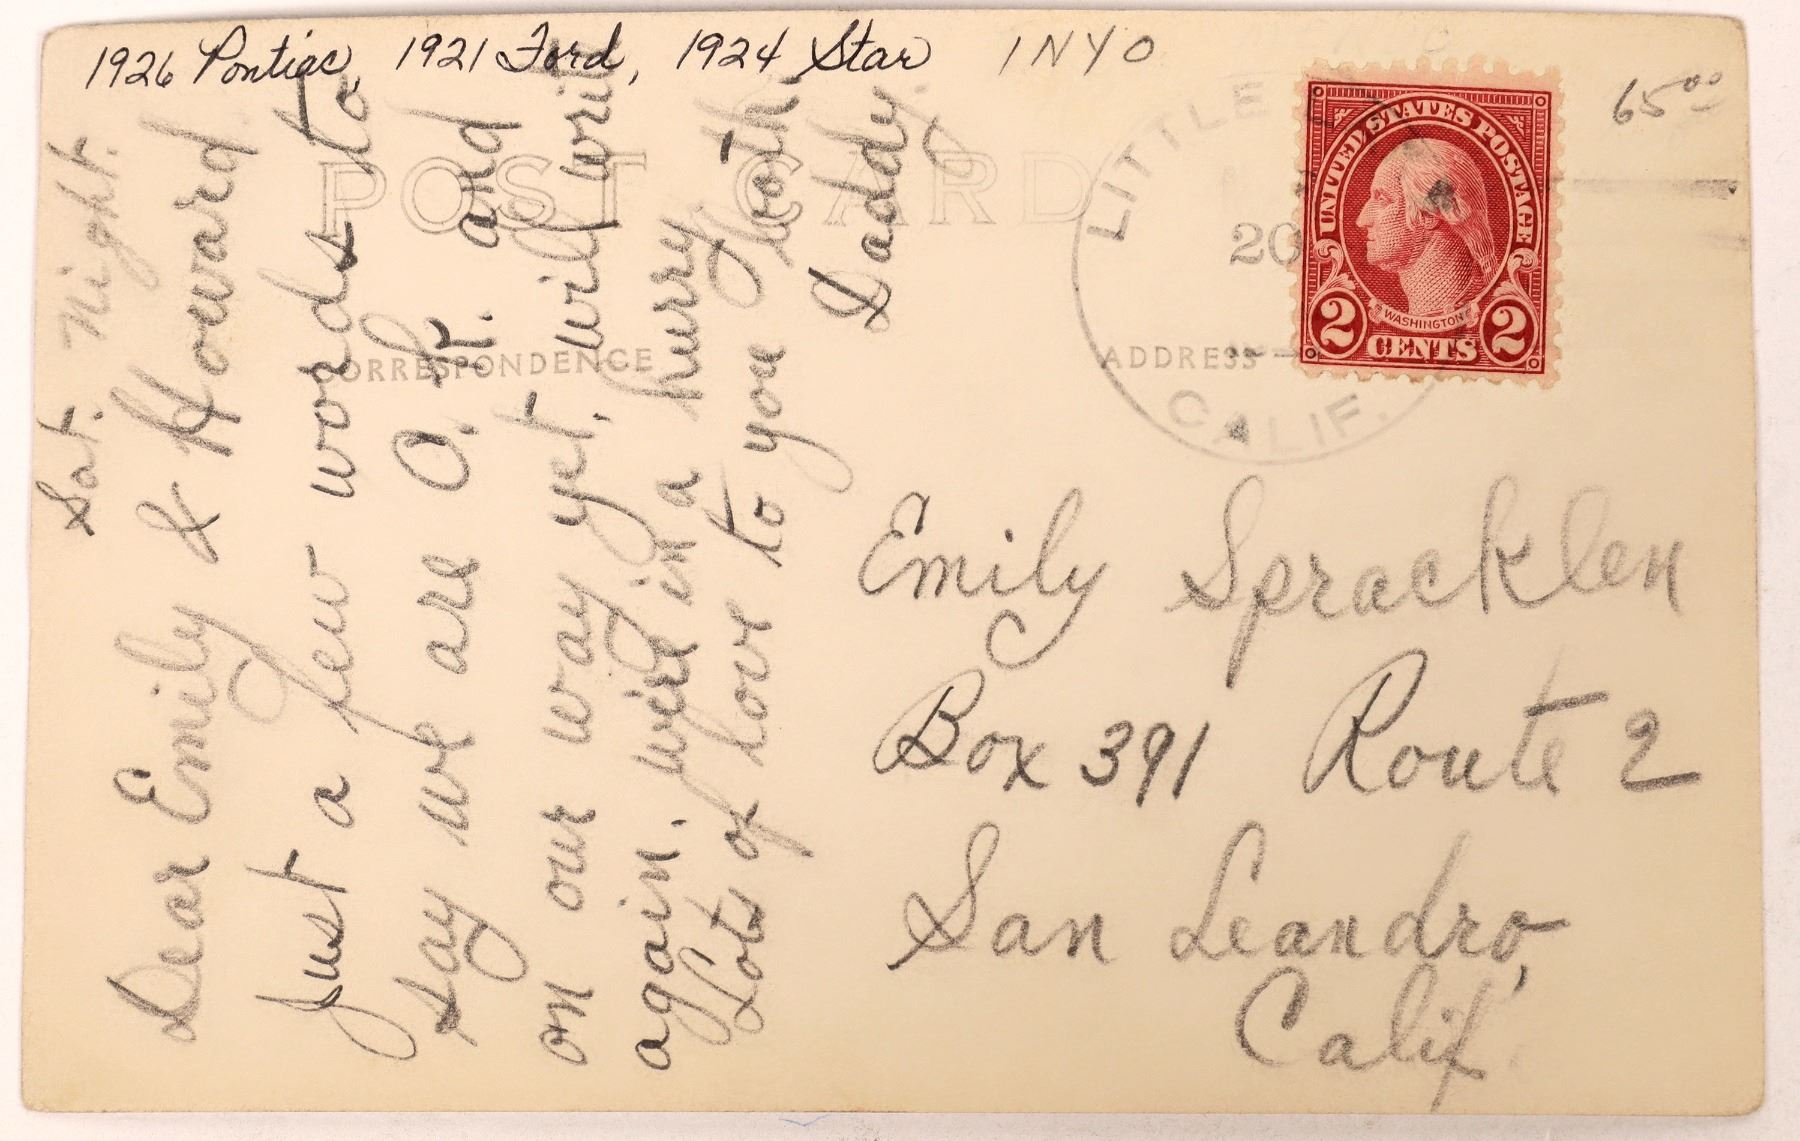 1926 Pontiac, 1921 Ford, 1924 Star INYO
65⁰⁰
POST CARD
CORRESPONDENCE
ADDRESS
LITTLE
20
CALIF.
UNITED STATES POSTAGE
WASHINGTON
2 CENTS 2
Sat. Night.
Dear Emily & Howard
Just a few words to
say we are O.K. and
on our way yet, will write
again. in a hurry
Lots of love to you both.
Daddy.
Emily Spracklen
Box 391 Route 2
San Leandro,
Calif.